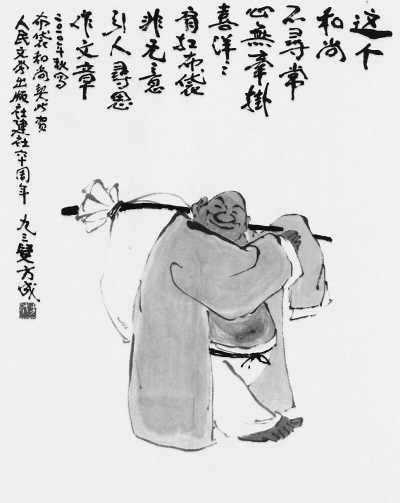 这个
和尚
不尋常
心無牽掛
喜洋洋
肩扛布袋
非无意
引人尋思
作文章
2010年秋写
布袋和尚以贺
人民文学出版社建社六十周年 九三叟方成